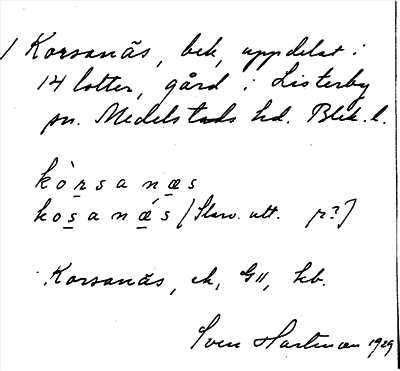 1 Korsanäs, bek, uppdelat i
14 lotter, gård i Listerby
sn. Medelstads hd. Blek. l.
kòrsanæs
kosanǽs [Slarv. utt. r?]
Korsanäs, ek, G11, hb.
Sven Hartman 1929